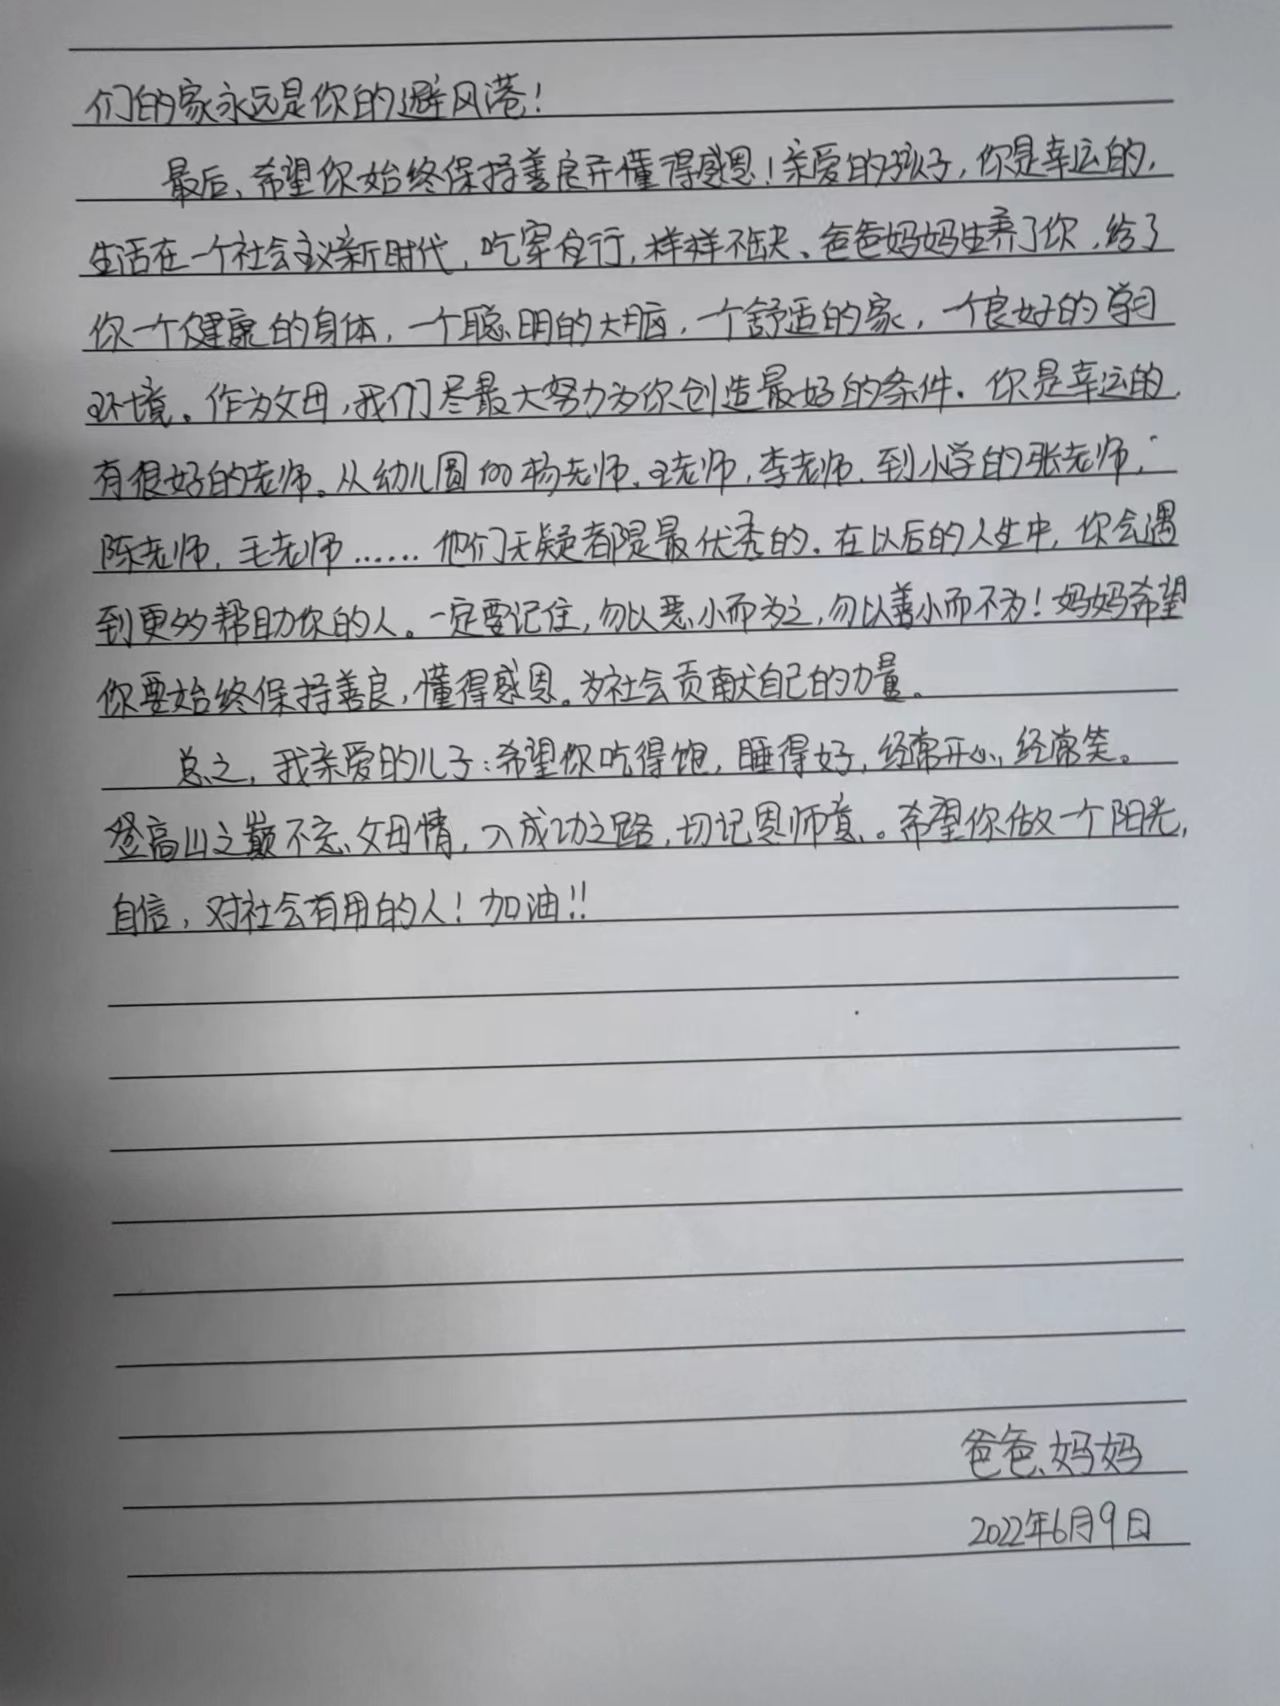 们的家永远是你的避风港!
最后、希望你始终保持善良并懂得感恩!亲爱的孩子,你是幸运的,
生活在一个社会主义新时代,吃穿住行,样样不缺、爸爸妈妈生养了你,给了
你一个健康的身体,一个聪明的大脑,一个舒适的家,一个良好的学习
环境。作为父母,我们尽最大努力为你创造最好的条件。你是幸运的,
有很好的老师。从幼儿园的杨老师,王老师,李老师,到小学的张老师,
陈老师,毛老师……他们无疑都是最优秀的。在以后的人生中,你会遇
到更多帮助你的人。一定要记住,勿以恶小而为之,勿以善小而不为!妈妈希望
你要始终保持善良,懂得感恩。为社会贡献自己的力量。
总之,我亲爱的儿子:希望你吃得饱,睡得好,经常开心,经常笑。
登高山之巅不忘父母情,入成功之路,切记恩师意。希望你做一个阳光,
自信,对社会有用的人!加油!!
爸爸、妈妈
2022年6月9日